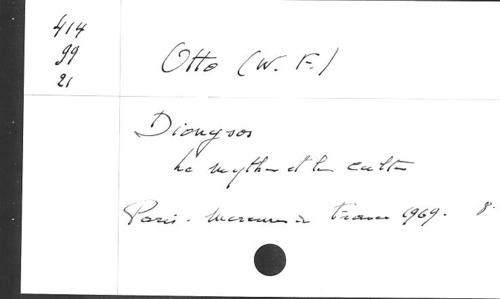 414
99
21
Otto (W. F.)
Dionysos
Le mythe et le culte
Paris. Mercure de France 1969. 8°